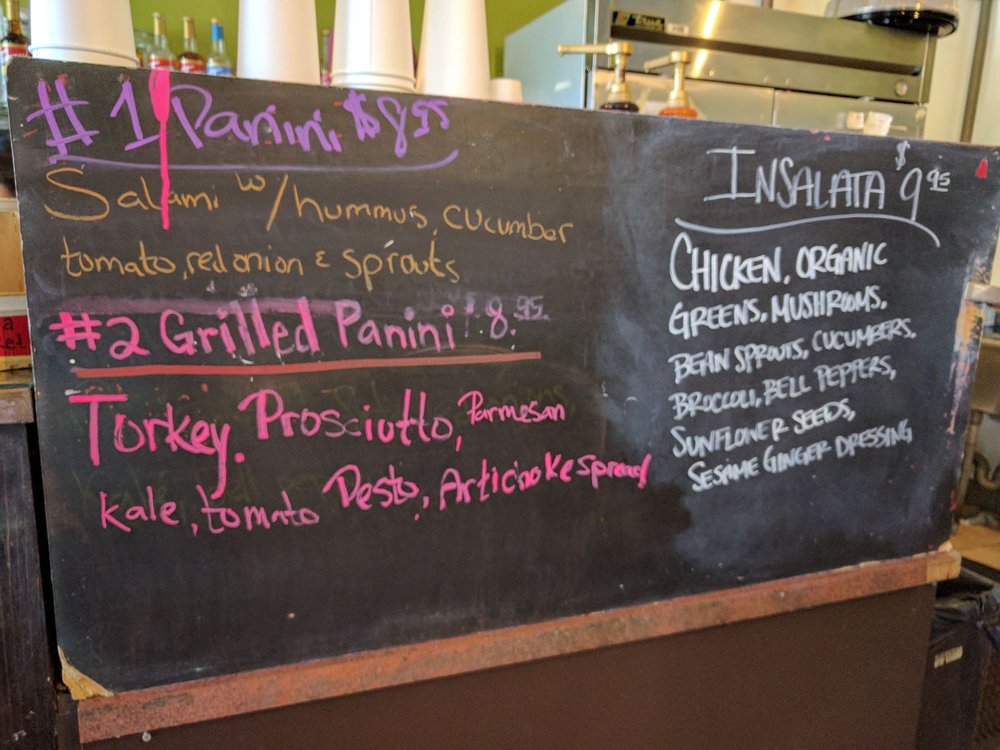 #1 Panini $8.95
Salami w/hummus, cucumber
tomato, red onion & sprouts
#2 Grilled Panini $8.95
Turkey. Prosciutto, Parmesan
kale, tomato Pesto, Artichoke spread
INSALATA $9.95
CHICKEN, ORGANIC
GREENS, MUSHROOMS,
BEAN SPROUTS, CUCUMBERS,
BROCCOLI, BELL PEPPERS,
SUNFLOWER SEEDS,
SESAME GINGER DRESSING